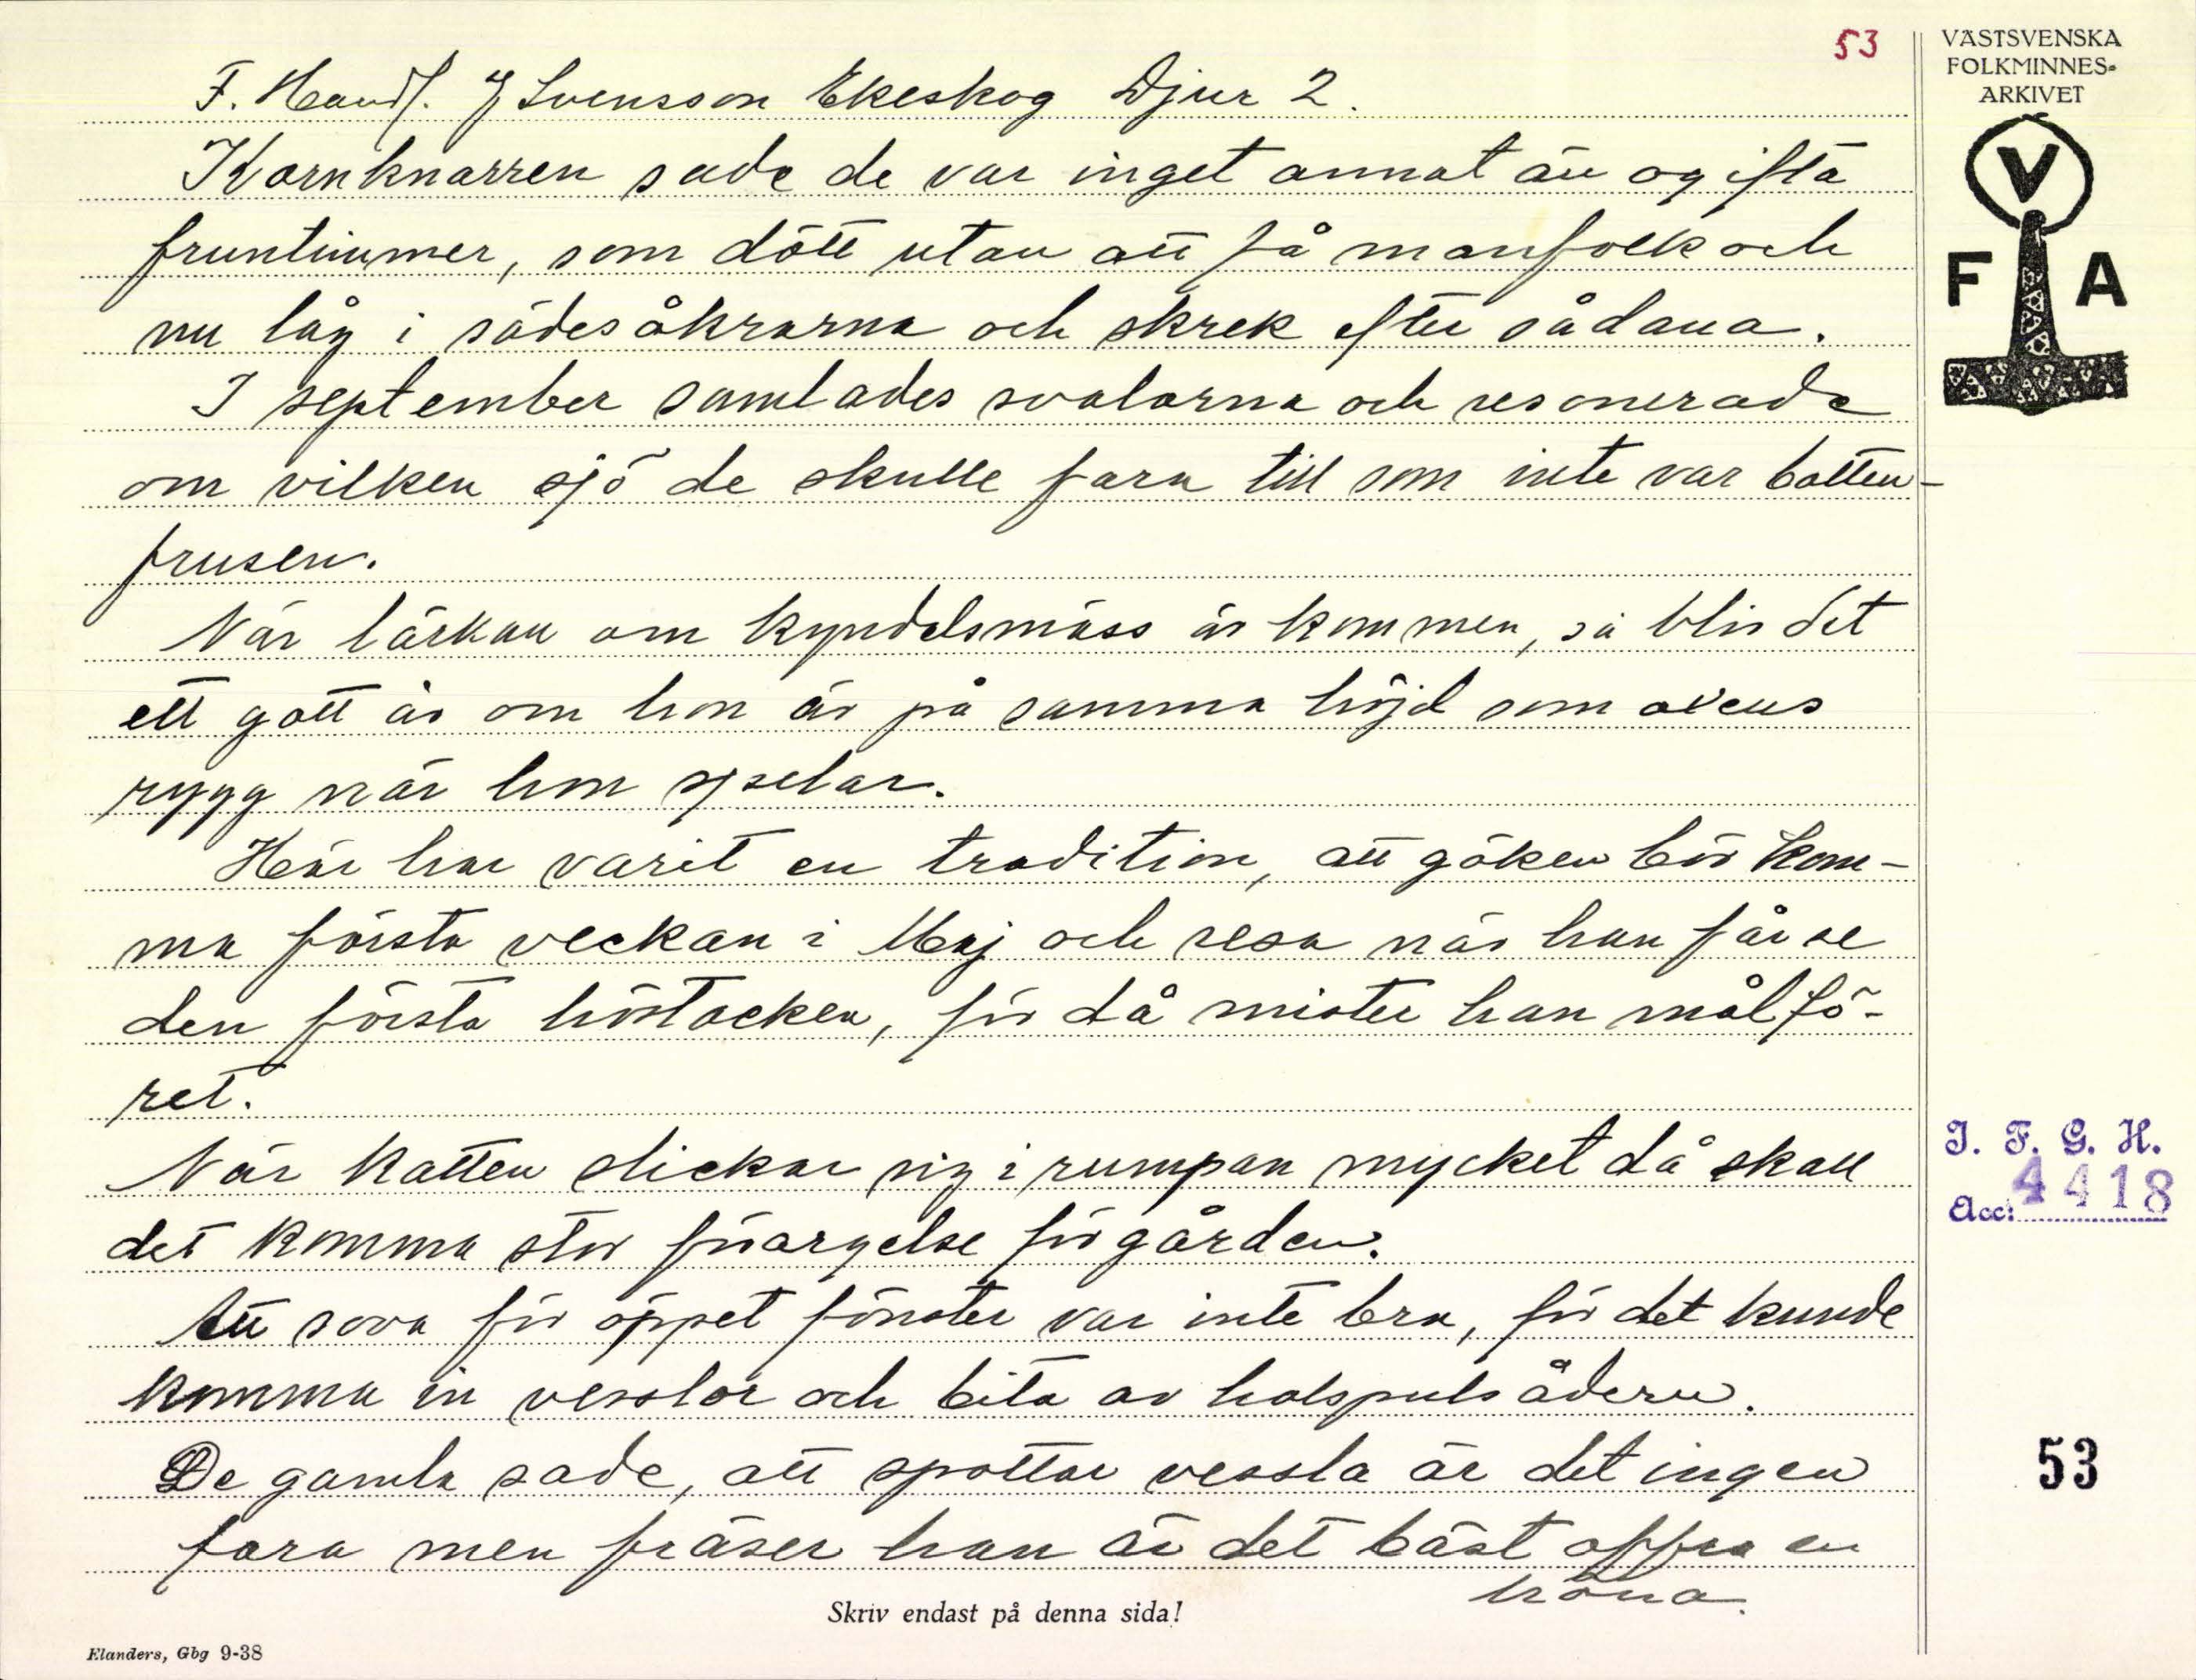 53
VÄSTSVENSKA
FOLKMINNES-
ARKIVET
V
F A
F. Handl. J Svensson Ekeskog Djur 2.
Kornknarren sade de var inget annat än ogifta
fruntimmer, som dött utan att få manfolk och
nu låg i sädesåkrarna och skrek efter sådana.
I september samlades svalorna och resonerade
om vilken sjö de skulle fara till som inte var botten-
frusen.
När lärkan om kyndelsmäss är kommen, så blir det
ett gott år om hon är på samma höjd som oxens
rygg när hon spelar.
Här har varit en tradition, att göken bör kom-
ma första veckan i Maj och resa när han får se
den första höstacken, för då mister han målfö-
ret.
När katten slickar sig i rumpan mycket då skall
det komma stor förargelse för gården.
Att sova för öppet fönster var inte bra, för det kunde
komma in vesslor och bita av halspulsådern.
De gamla sade, att spottar vessla är det ingen
fara men fräser han är det bäst offra en
höna.
Skriv endast på denna sida!
Elanders, Gbg 9-38
I. F. G. H.
Acc: 4418
53